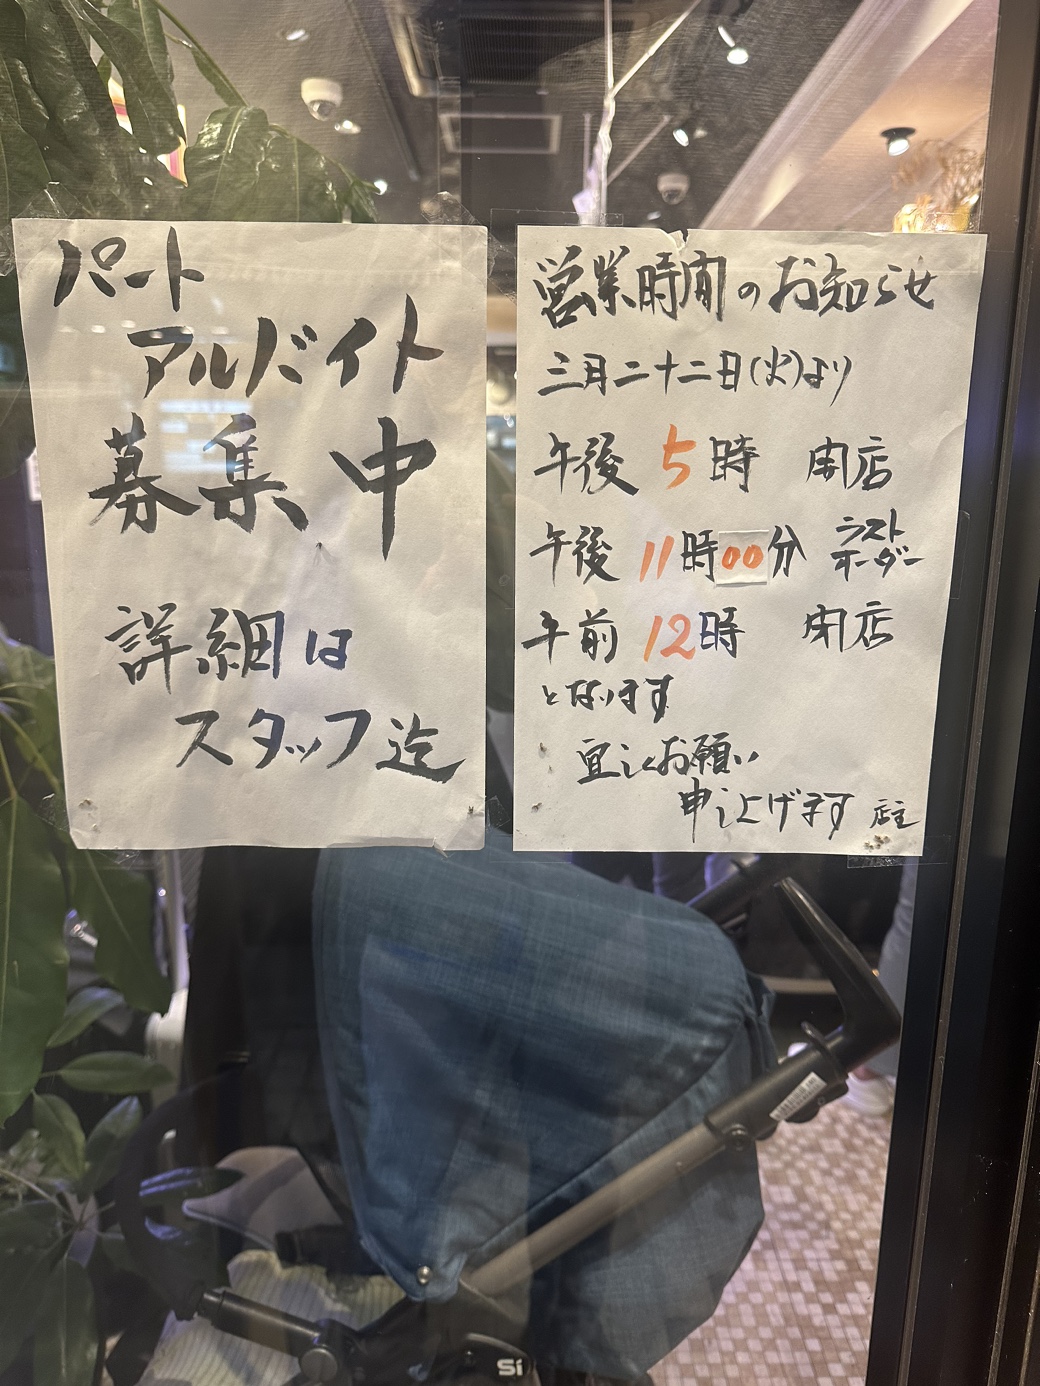 パート
アルバイト
募集中
詳細は
スタッフ迄
営業時間のお知らせ
三月二十二日(火)より
午後5時 開店
午後11時00分 ラスト
オーダー
午前12時 閉店
となります
宜しくお願い
申し上げます 店主
Si